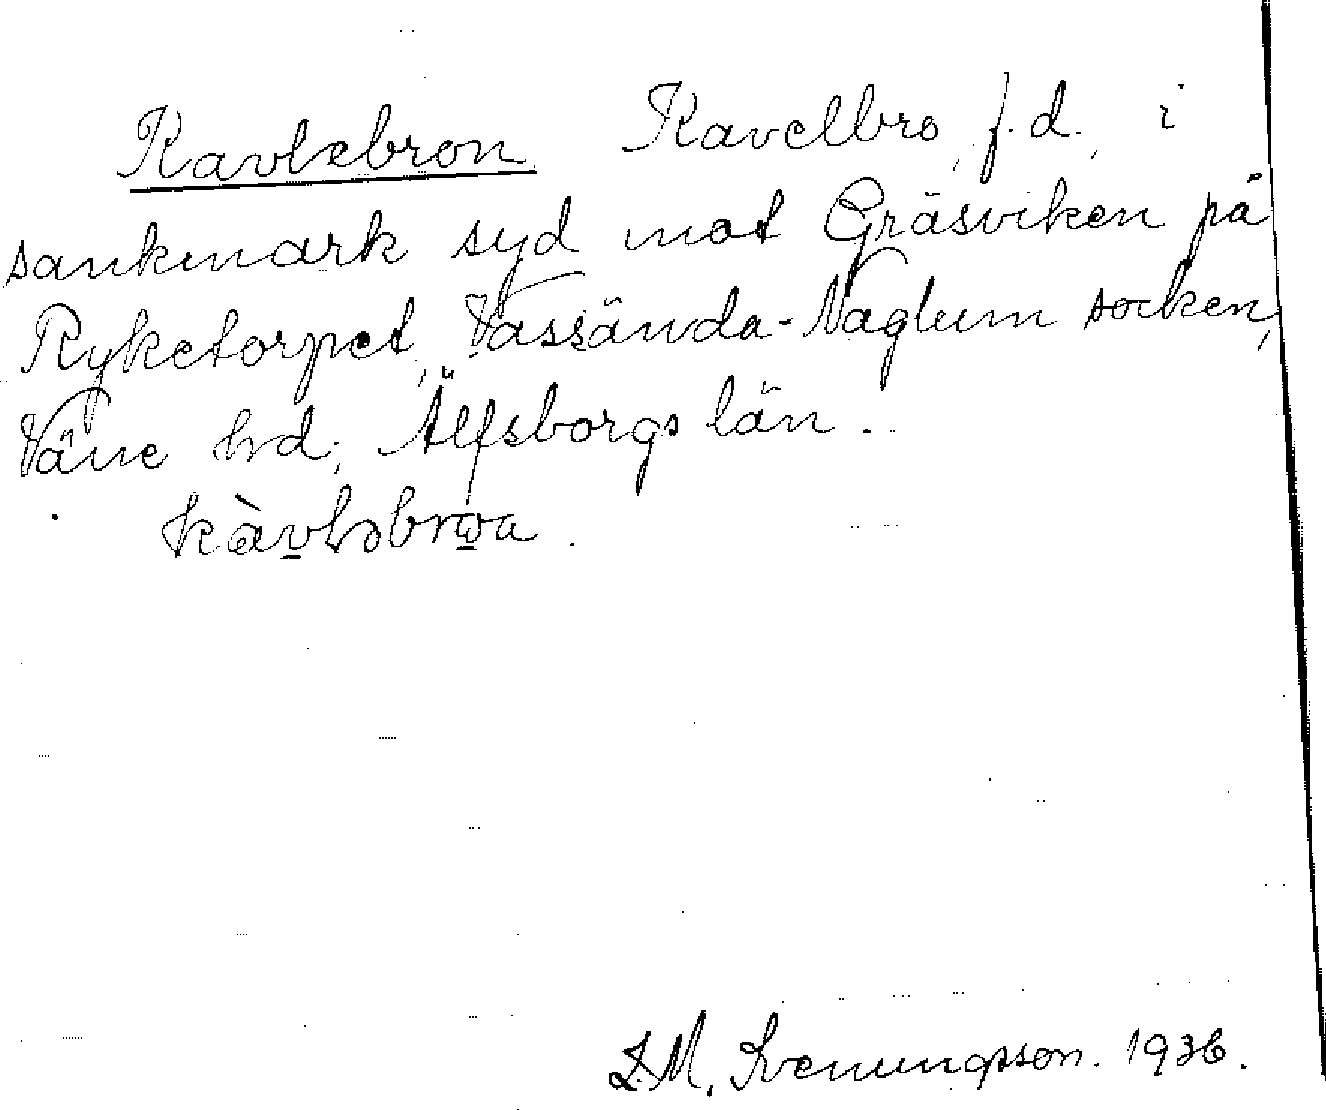 Kavlebron Kavelbro, f.d., i
sankmark syd mot Gräsviken på
Ryketorpet, Vassända-Naglum socken,
Väne hd, Älfsborgs län.
kàvləbrωa.
I.M. Svenungsson. 1936.